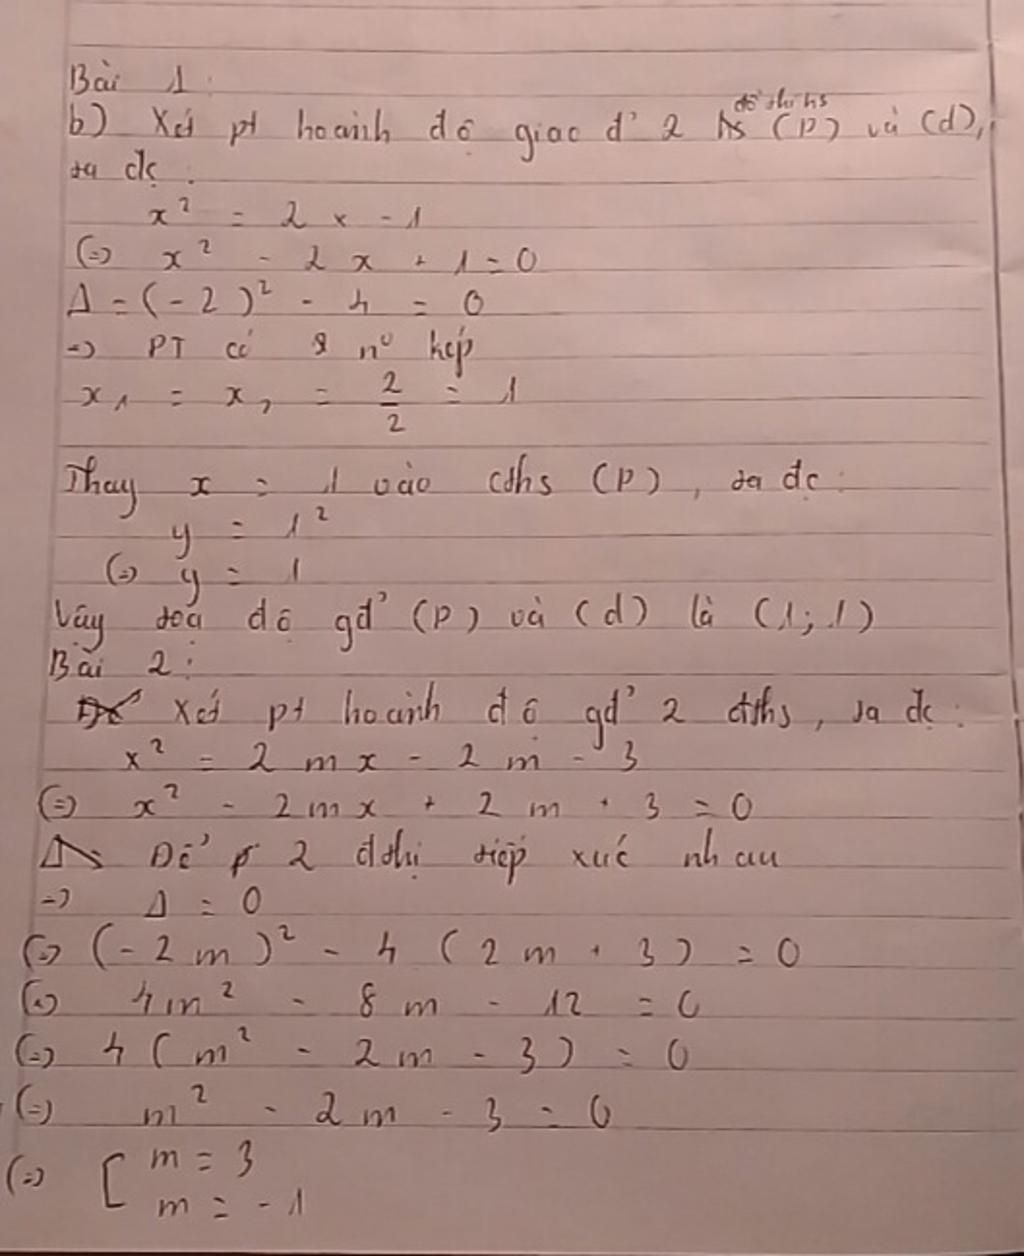 Bài 1:
b) Xét pt hoành độ giao đ' 2 đồ thị hs (P) và (d),
ta đc:
x² = 2x - 1
(=) x² - 2x + 1 = 0
Δ = (-2)² - 4 = 0
=) PT có n⁰ kép
x₁ = x₂ = 2/2 = 1
Thay x = 1 vào cths (P), ta đc:
y = 1²
(=) y = 1
Vậy toạ độ gđ' (P) và (d) là (1; 1)
Bài 2:
Xét pt hoành độ gđ' 2 đths, ta đc:
x² = 2mx - 2m - 3
(=) x² - 2mx + 2m + 3 = 0
Để 2 đthị tiếp xúc nhau
=) Δ = 0
(=) (-2m)² - 4(2m + 3) = 0
(=) 4m² - 8m - 12 = 0
(=) 4(m² - 2m - 3) = 0
(=) m² - 2m - 3 = 0
(=) [ m = 3
m = -1